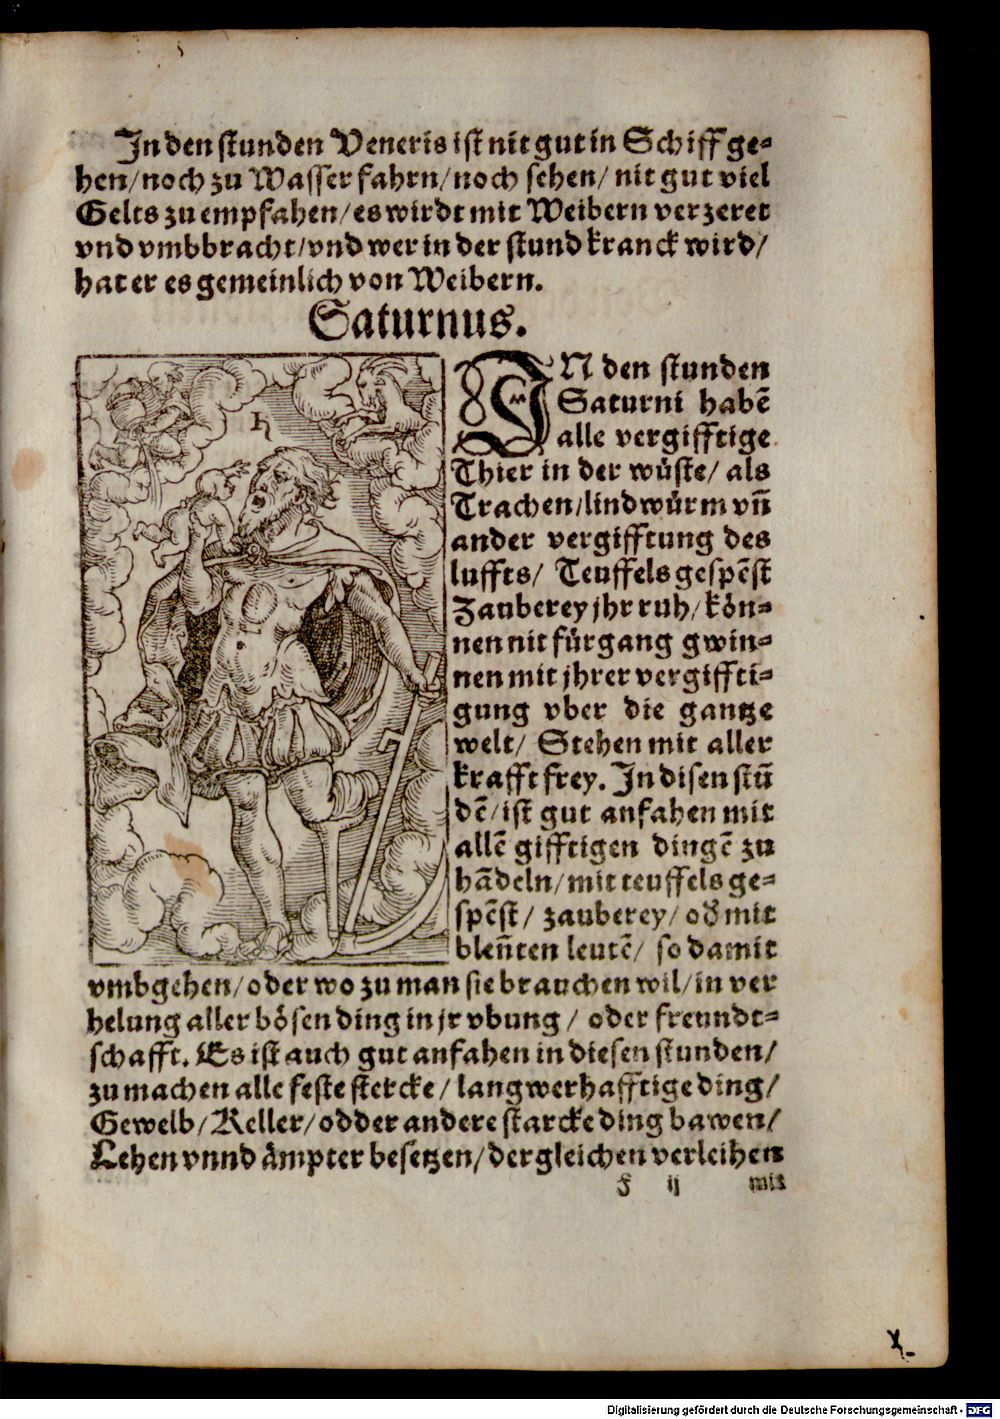 In den stunden Veneris ist nit gut in Schiff ge-
hen/noch zu Wasser fahrn/noch sehen/ nit gut viel
Gelts zu empfahen/es wirdt mit Weibern verzeret
vnd vmbbracht/vnd wer in der stund kranck wird/
hat er es gemeinlich von Weibern.
Saturnus.
♄
IN den stunden
Saturni habē
alle vergifftige
Thier in der wüste/ als
Trachen/lindwürm vn̄
ander vergifftung des
luffts/ Teuffels gespēst
Zauberey jhr ruh/ kön-
nen nit fürgang gwin-
nen mit jhrer vergiffti-
gung vber die gantze
welt/ Stehen mit aller
krafft frey. In disen stū
dē/ist gut anfahen mit
allē gifftigen dingē zu
hādeln/mit teuffels ge-
spēst/ zauberey/ oď mit
blen̄ten leutē/ so damit
vmbgehen/oder wo zu man sie brauchen wil/in ver
helung aller bösen ding in jr vbung / oder freundt-
schafft. Es ist auch gut anfahen in diesen stunden/
zu machen alle feste stercke / langwerhafftige ding/
Gewelb/ Keller/ odder andere starcke ding bawen/
Lehen vnnd ämpter besetzen/dergleichen verleihen
F ij mit
Digitalisierung gefördert durch die Deutsche Forschungsgemeinschaft - DFG